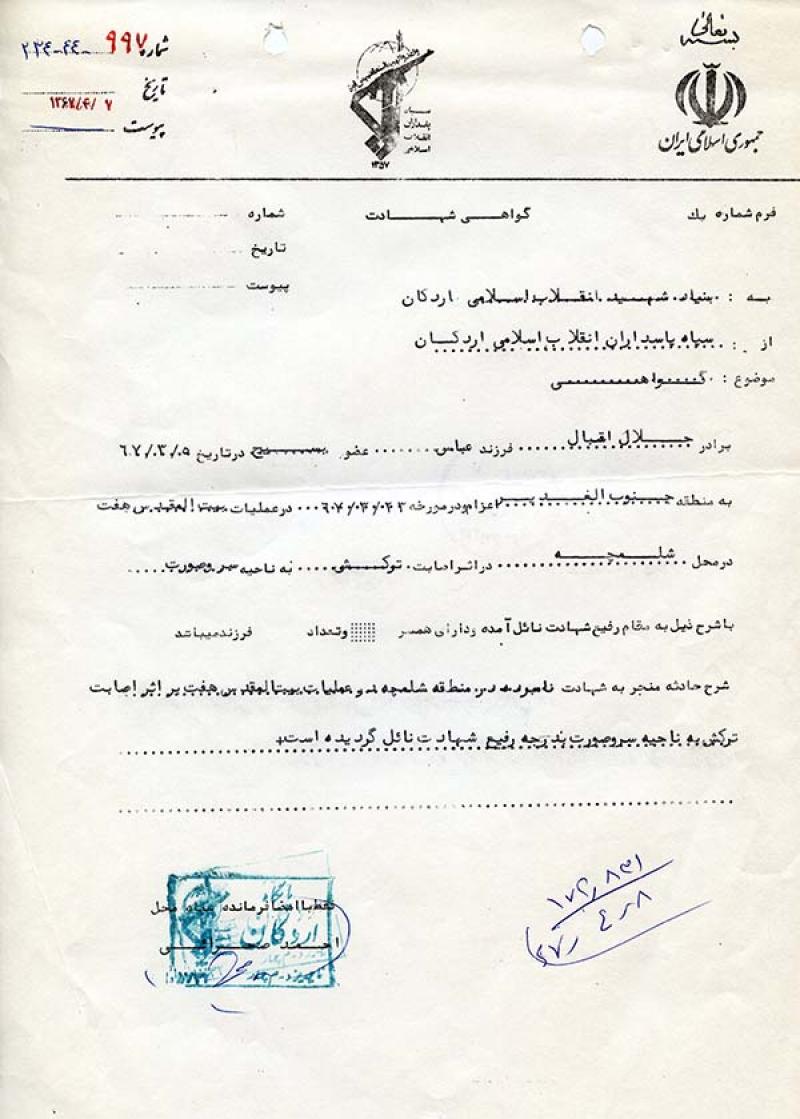 بسمه تعالی
جمهوری اسلامی ایران
سپاه
پاسداران
انقلاب
اسلامی
۱۳۵۷
شماره ۹۹۷-۴۴-۲۳۴
تاریخ ۱۳۶۷/۴/۷
پیوست
فرم شماره یك گواهی شهادت شماره
تاریخ
پیوست
به : بنیاد شهید انقلاب اسلامی اردکان
از : سپاه پاسداران انقلاب اسلامی اردکان
موضوع : گواهی
برادر جلال اقبال فرزند عباس عضو بسیج در تاریخ ۶۷/۰۳/۰۵
به منطقه جنوب الغدیر اعزام و در مورخه ۶۷/۰۳/۰۲۳ در عملیات بیت المقدس هفت
در محل شلمچه در اثر اصابت ترکش به ناحیه سر و صورت
با شرح ذیل به مقام رفیع شهادت نائل آمده و دارای همسر و تعداد فرزند میباشد
شرح حادثه منجر به شهادت نامبرده در منطقه شلمچه در عملیات بیت المقدس هفت بر اثر اصابت
ترکش به ناحیه سر و صورت بدرجه رفیع شهادت نائل گردیده است
فقط با امضا فرمانده سپاه محل
اردکان
احمد
۶۷/۴/۸